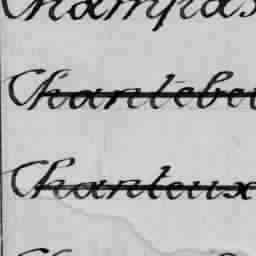 Champas
Chantebe
Chanteux